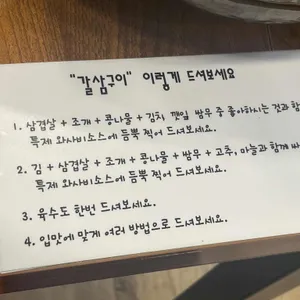 "갈삼구이" 이렇게 드셔보세요
1. 삼겹살 + 조개 + 콩나물 + 김치, 깻잎 쌈무 중 좋아하시는 것과 함
특제 와사비소스에 듬뿍 찍어 드셔보세요.
2. 김 + 삼겹살 + 조개 + 콩나물 + 쌈무 + 고추, 마늘과 함께 싸
특제 와사비소스에 듬뿍 찍어 드셔보세요.
3. 육수도 한번 드셔보세요.
4. 입맛에 맞게 여러 방법으로 드셔보세요.